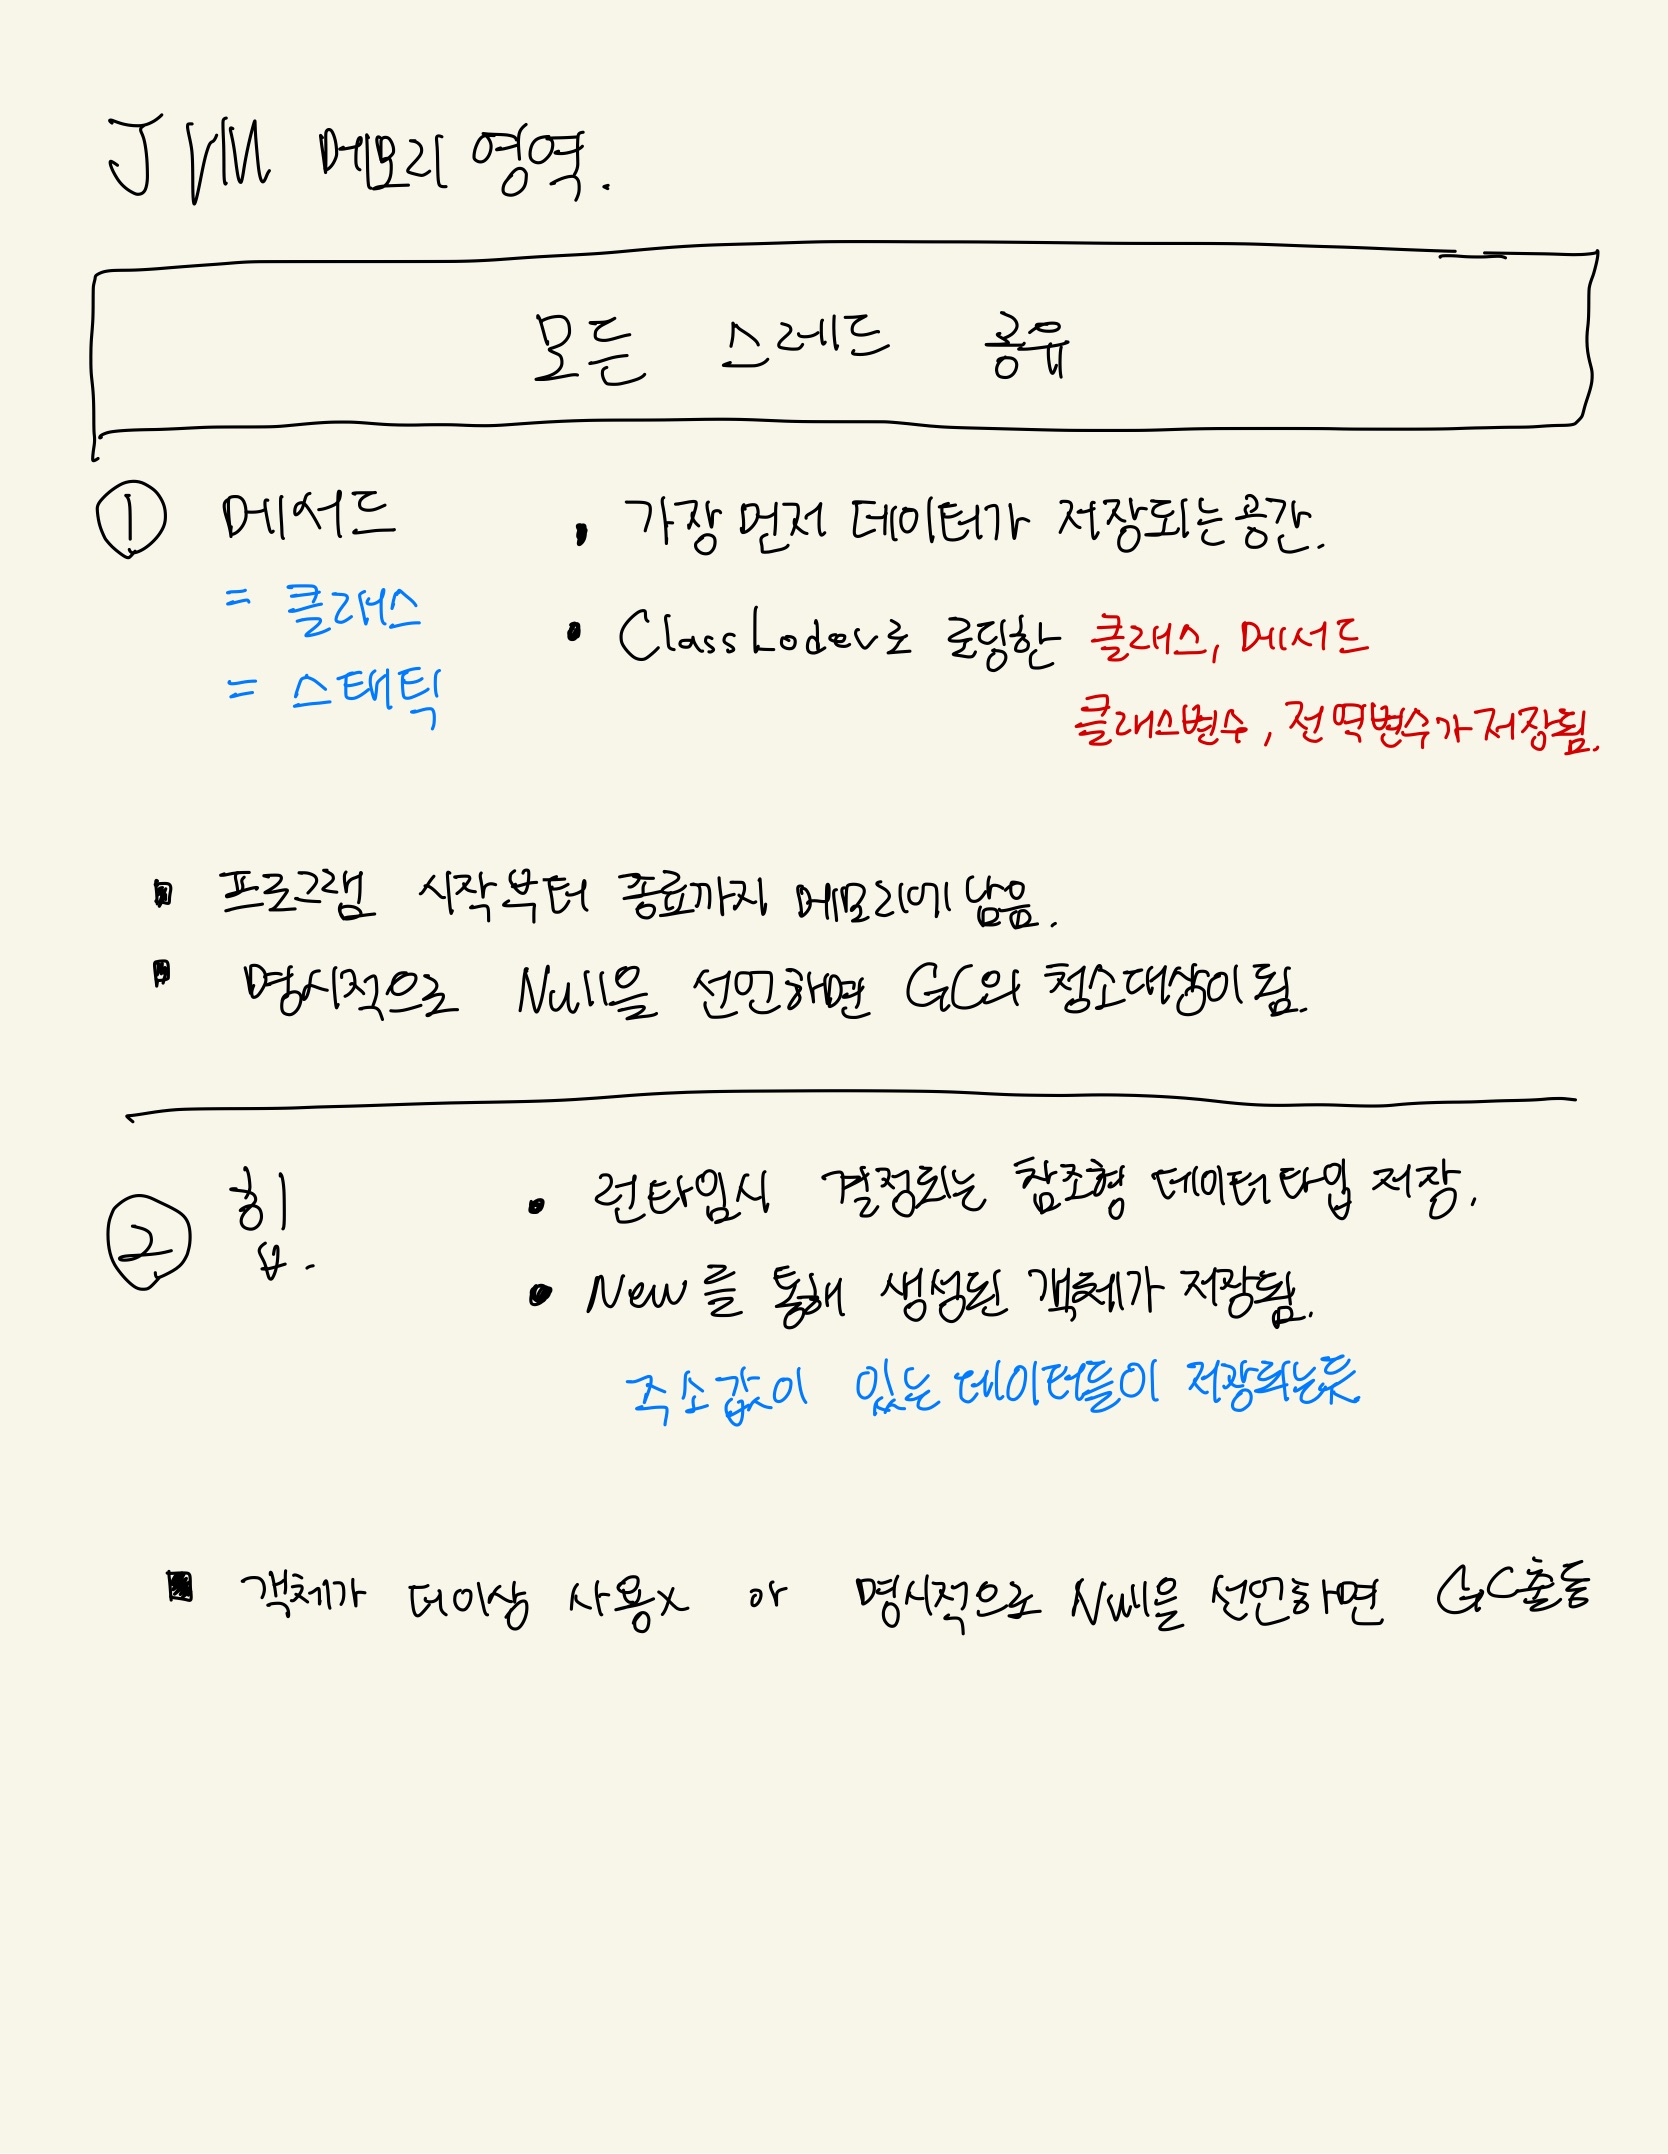 JVM 메모리 영역.
모든 스레드 공유
① 메서드
= 클래스
= 스태틱
• 가장 먼저 데이터가 저장되는 공간.
• ClassLoder로 로딩한 클래스, 메서드
클래스변수, 전역변수가 저장됨.
▪ 프로그램 시작부터 종료까지 메모리에 남음.
▪ 명시적으로 Null을 선언하면 GC의 청소대상이 됨.
② 힙.
• 런타임시 결정되는 참조형 데이터 타입 저장.
• New를 통해 생성된 객체가 저장됨.
주소값이 있는 데이터들이 저장되는듯
▪ 객체가 더이상 사용x or 명시적으로 Null을 선언하면 GC출동